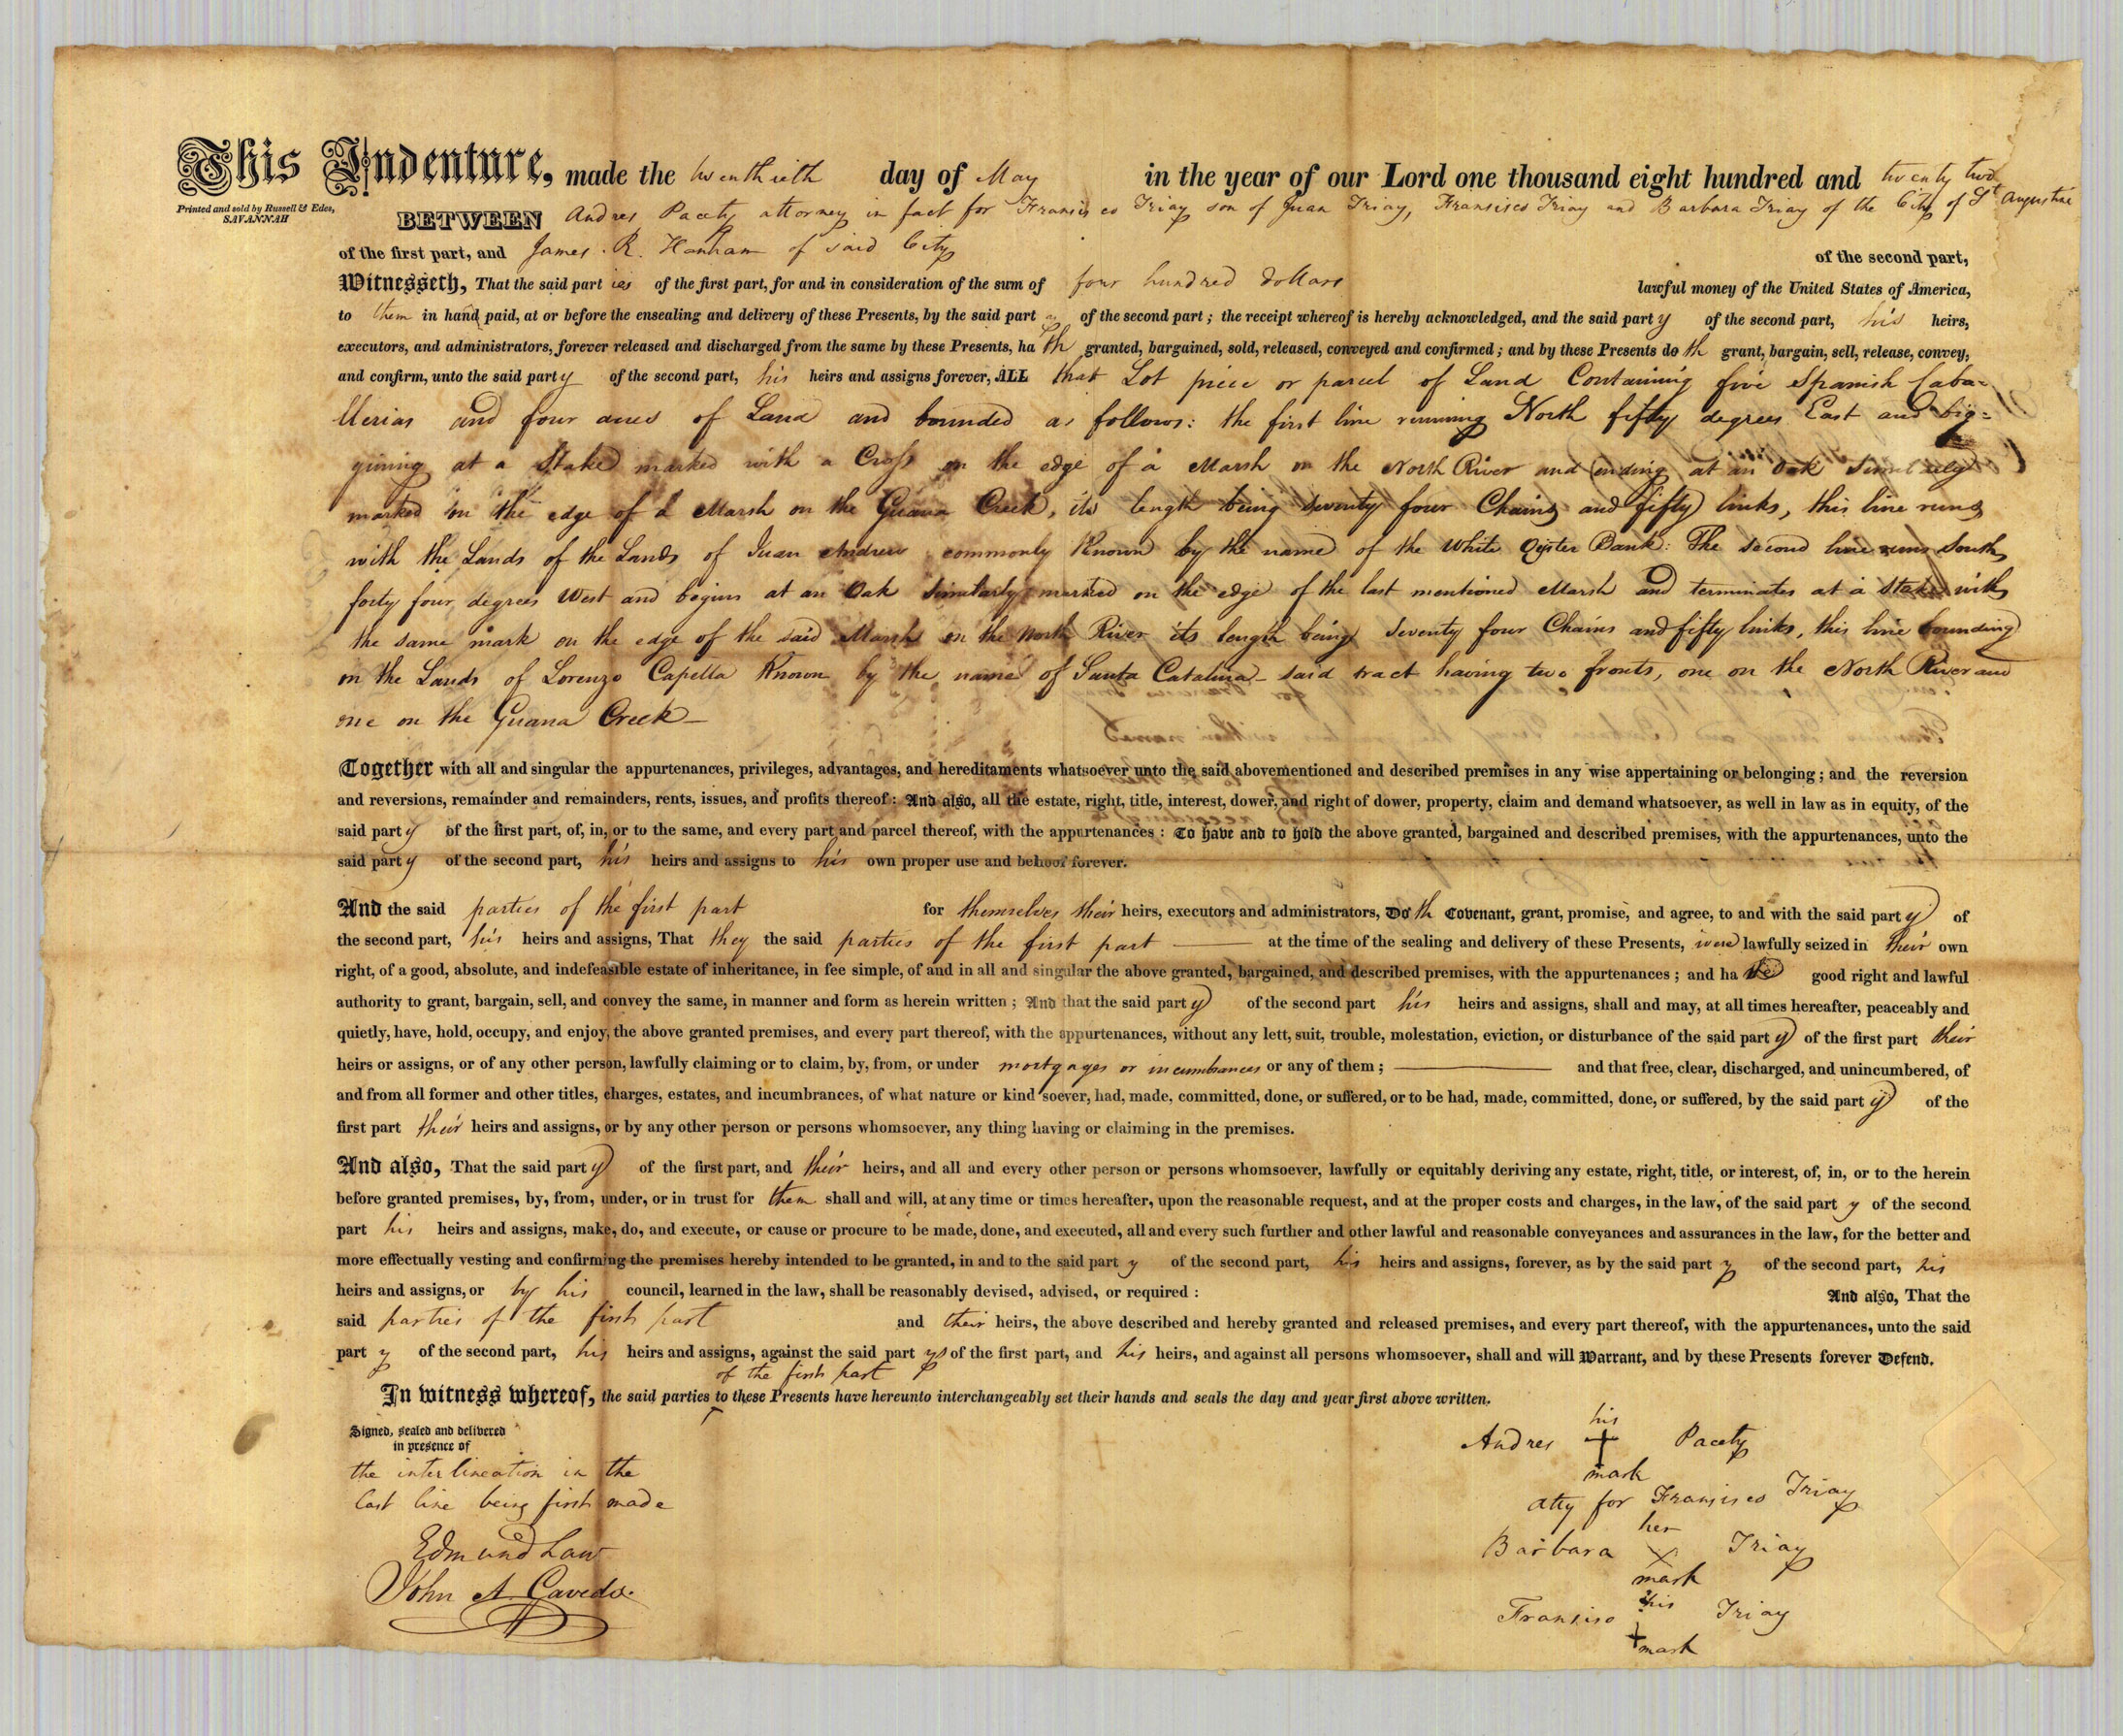 This Indenture, made the twenthieth day of May in the year of our Lord one thousand eight hundred and twenty two
Printed and sold by Russell & Edes,
SAVANNAH
BETWEEN Andres Pacety attorney in fact for Fransisco Triay son of Juan Triay, Fransisco Triay and Barbara Triay of the City of St Augustine
of the first part, and James R. Hanham of said City of the second part,
Witnesseth, That the said parties of the first part, for and in consideration of the sum of four hundred dollars lawful money of the United States of America,
to them in hand paid, at or before the ensealing and delivery of these Presents, by the said part of the second part; the receipt whereof is hereby acknowledged, and the said party of the second part, his heirs,
executors, and administrators, forever released and discharged from the same by these Presents, hath granted, bargained, sold, released, conveyed and confirmed; and by these Presents doth grant, bargain, sell, release, convey,
and confirm, unto the said party of the second part, his heirs and assigns forever, ALL that Lot piece or parcel of Land Containing five Spanish Caba=
llerias and four acres of Land and bounded as follows: the first line running North fifty degrees East and big=
gining at a Stake marked with a Cross on the edge of a Marsh on the North River and ending at an Oak similarly
marked on the edge of a Marsh on the Guana Creek, its length being seventy four Chains and fifty links, this line runs
with the Lands of the Lands of Juan Andreu commonly Known by the name of the White Oyster Bank: The second line runs South
forty four degrees West and begins at an Oak similarly marked on the edge of the last mentioned Marsh and terminates at a Stake with
the same mark on the edge of the said Marsh on the North River its length being seventy four Chains and fifty links, this line bounding
on the Lands of Lorenzo Capella Known by the name of Santa Catalina - said tract having two fronts, one on the North River and
one on the Guana Creek -
Together with all and singular the appurtenances, privileges, advantages, and hereditaments whatsoever unto the said abovementioned and described premises in any wise appertaining or belonging; and the reversion
and reversions, remainder and remainders, rents, issues, and profits thereof: And also, all the estate, right, title, interest, dower, and right of dower, property, claim and demand whatsoever, as well in law as in equity, of the
said party of the first part, of, in, or to the same, and every part and parcel thereof, with the appurtenances: To have and to hold the above granted, bargained and described premises, with the appurtenances, unto the
said party of the second part, his heirs and assigns to his own proper use and behoof forever.
And the said parties of the first part for themselves their heirs, executors and administrators, Doth Covenant, grant, promise, and agree, to and with the said party of
the second part, his heirs and assigns, That they the said parties of the first part at the time of the sealing and delivery of these Presents, were lawfully seized in their own
right, of a good, absolute, and indefeasible estate of inheritance, in fee simple, of and in all and singular the above granted, bargained, and described premises, with the appurtenances; and have good right and lawful
authority to grant, bargain, sell, and convey the same, in manner and form as herein written; And that the said party of the second part his heirs and assigns, shall and may, at all times hereafter, peaceably and
quietly, have, hold, occupy, and enjoy, the above granted premises, and every part thereof, with the appurtenances, without any lett, suit, trouble, molestation, eviction, or disturbance of the said party of the first part their
heirs or assigns, or of any other person, lawfully claiming or to claim, by, from, or under mortgages or incumbrances or any of them; and that free, clear, discharged, and unincumbered, of
and from all former and other titles, charges, estates, and incumbrances, of what nature or kind soever, had, made, committed, done, or suffered, or to be had, made, committed, done, or suffered, by the said party of the
first part their heirs and assigns, or by any other person or persons whomsoever, any thing having or claiming in the premises.
And also, That the said party of the first part, and their heirs, and all and every other person or persons whomsoever, lawfully or equitably deriving any estate, right, title, or interest, of, in, or to the herein
before granted premises, by, from, under, or in trust for them shall and will, at any time or times hereafter, upon the reasonable request, and at the proper costs and charges, in the law, of the said party of the second
part his heirs and assigns, make, do, and execute, or cause or procure to be made, done, and executed, all and every such further and other lawful and reasonable conveyances and assurances in the law, for the better and
more effectually vesting and confirming the premises hereby intended to be granted, in and to the said party of the second part, his heirs and assigns, forever, as by the said party of the second part, his
heirs and assigns, or by his council, learned in the law, shall be reasonably devised, advised, or required: And also, That the
said parties of the first part and their heirs, the above described and hereby granted and released premises, and every part thereof, with the appurtenances, unto the said
party of the second part, his heirs and assigns, against the said partys of the first part, and his heirs, and against all persons whomsoever, shall and will Warrant, and by these Presents forever Defend.
of the first part
In witness whereof, the said parties to these Presents have hereunto interchangeably set their hands and seals the day and year first above written.
Signed, sealed and delivered
in presence of
the interlineation in the
last line being first made
Edmund Law
John A. Cavedo
his
Andres + Pacety
mark
atty for Fransisco Triay
her
Barbara X Triay
mark
his
Fransiso + Triay
mark